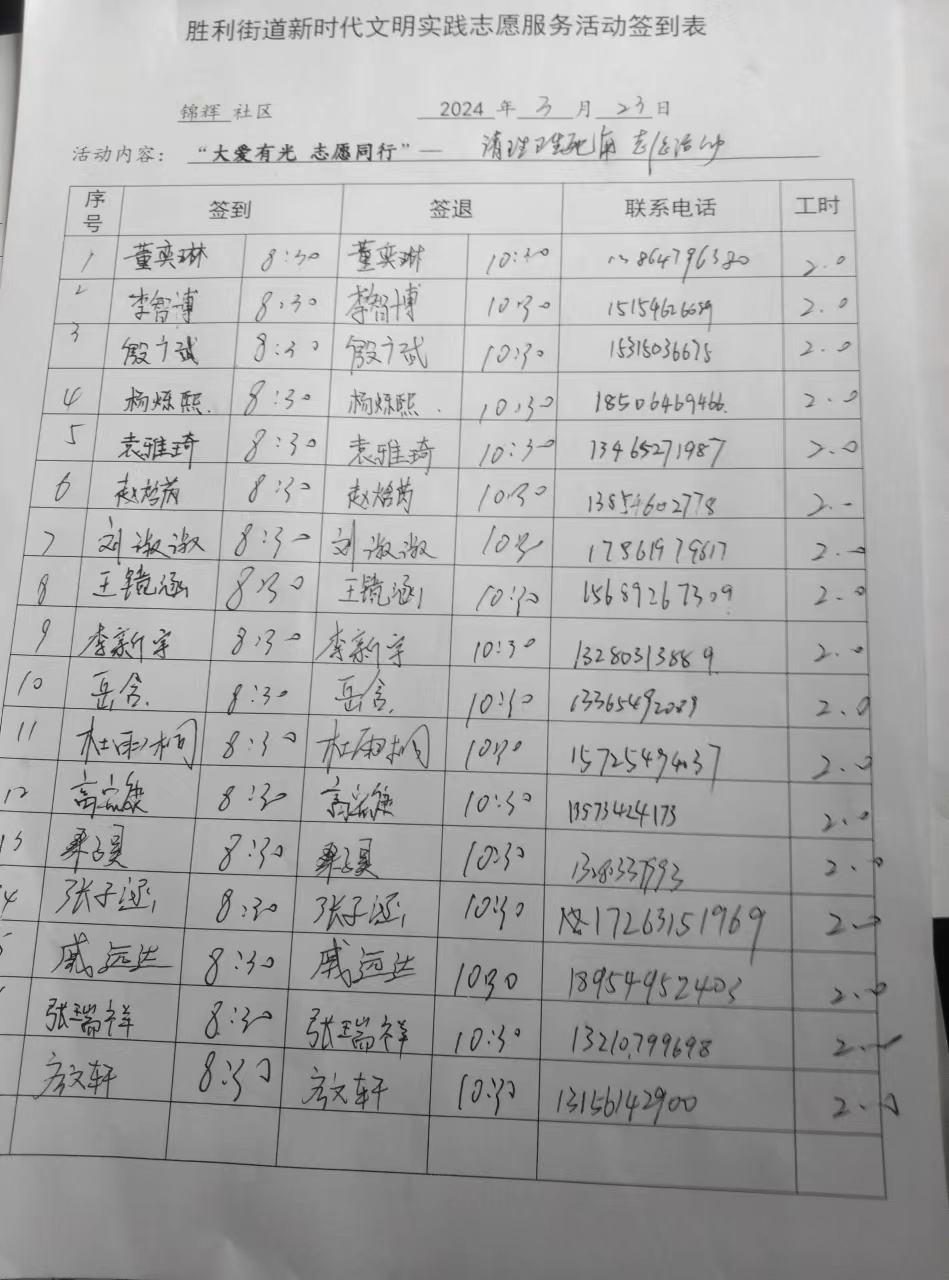 胜利街道新时代文明实践志愿服务活动签到表
锦辉 社区 2024 年 3 月 23 日
活动内容： “大爱有光 志愿同行”— 清理卫生死角 志愿活动
序号 签到 签退 联系电话 工时
1 董奕琳 8:30 董奕琳 10:30 2.0
2 李智博 8:30 李智博 10:30 2.0
3 殷于斌 8:30 殷于斌 10:30 15315036675 2.0
4 杨烁熙. 8:30 杨烁熙. 10:30 18506469466. 2.0
5 袁雅琦 8:30 袁雅琦 10:30 13465271987 2.0
6 8:30 10:30 13854602778 2.0
7 刘潋潋 8:30 刘潋潋 10:30 17861979817 2.0
8 王镜涵 8:30 王镜涵 10:30 15689267309 2.0
9 李新宇 8:30 李新宇 10:30 13280313889 2.0
10 岳含. 8:30 岳含. 10:30 13365492089 2.0
11 杜雨桐 8:30 杜雨桐 10:30 2.0
12 8:30 10:30 13573424173 2.0
13 8:30 10:30 2.0
4 张子涵 8:30 张子涵 10:30 17263151969 2.0
5 戚远达 8:30 戚远达 1030 18954952403 2.0
张瑞祥 8:30 张瑞祥 10:30 13210799698 2.0
8:30 10:30 13156142900 2.0